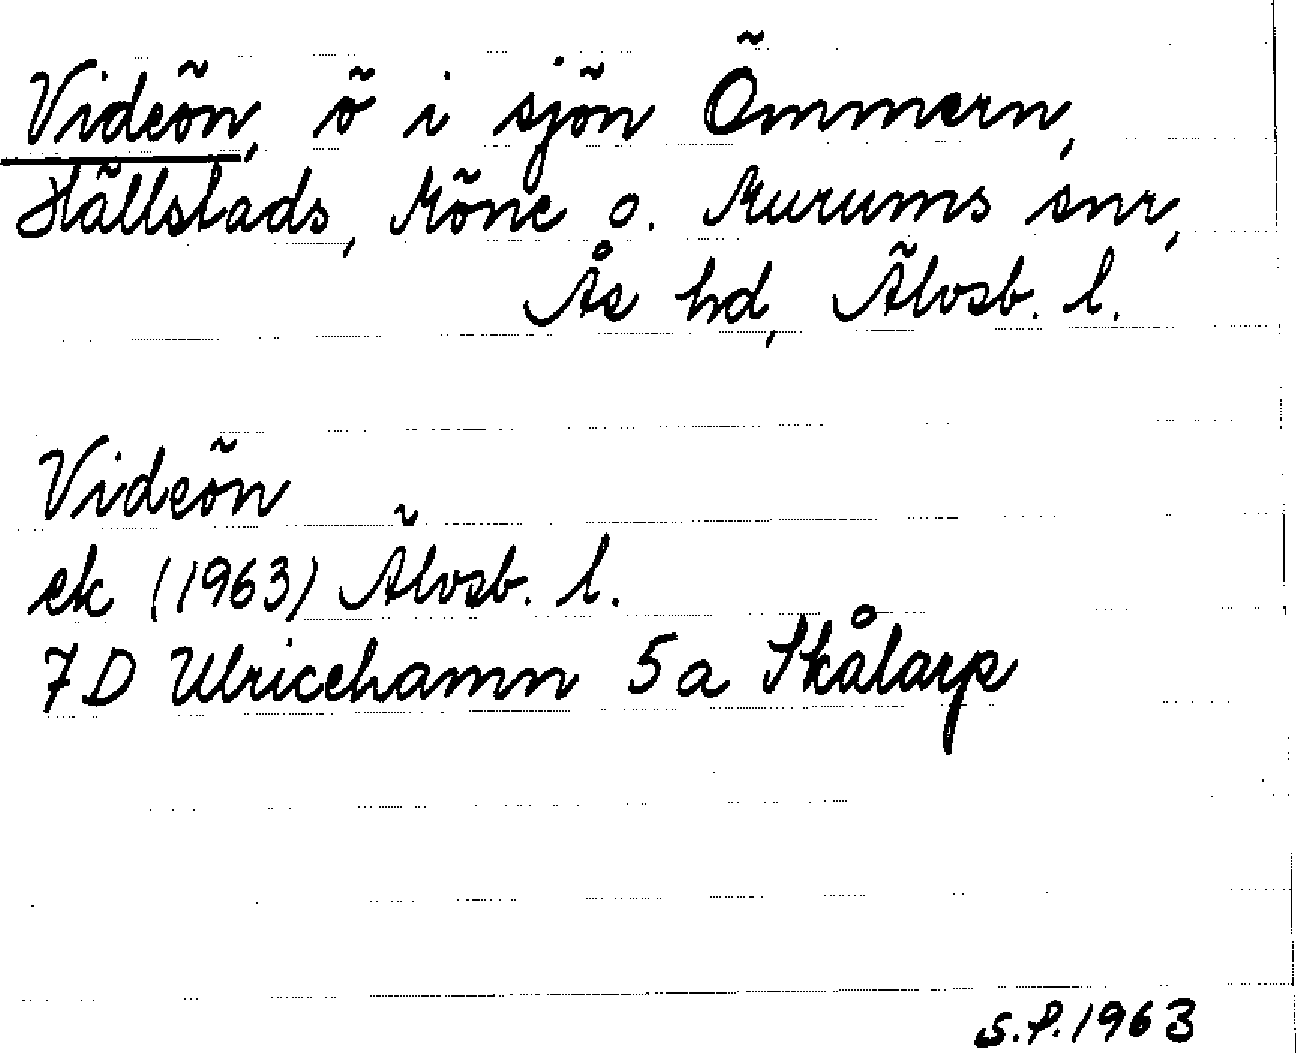 Videön, ö i sjön Ömmern,
Hällstads, Möne o. Murums snr,
Ås hd, Älvsb. l.
Videön
ek (1963) Älvsb. l.
7D Ulricehamn 5a Skålarp
S.P. 1963